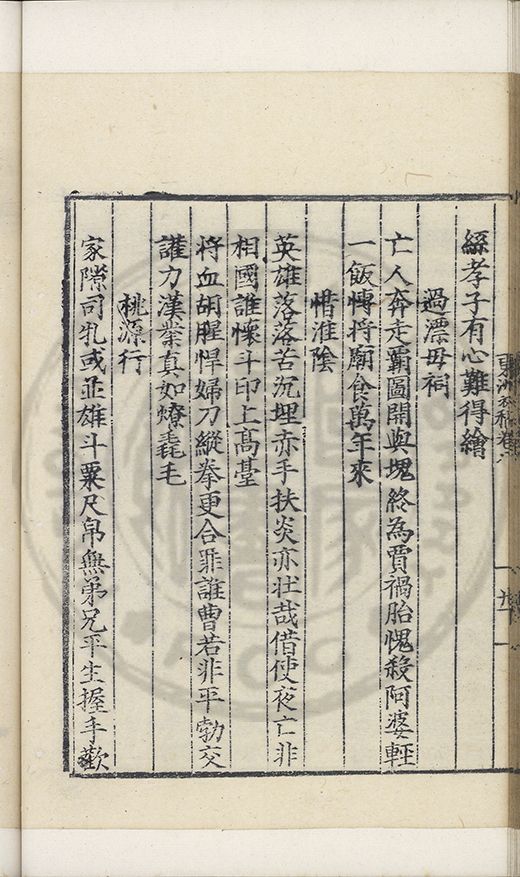 絲孝子有心難得繪
過漂母祠
亡人奔走霸圖開與塊終為賈禍胎愧殺阿婆輕
一飯傳將廟食萬年來
惜淮陰
英雄落落苦沉埋赤手扶炎亦壯哉借使夜亡非
相國誰懷斗印上高臺
將血胡腥悍婦刀縱拳更合罪誰曹若非平勃交
讙力漢業真如燎毳毛
桃源行
家隙司乳或並雄斗粟尺帛無弟兄平生握手歡